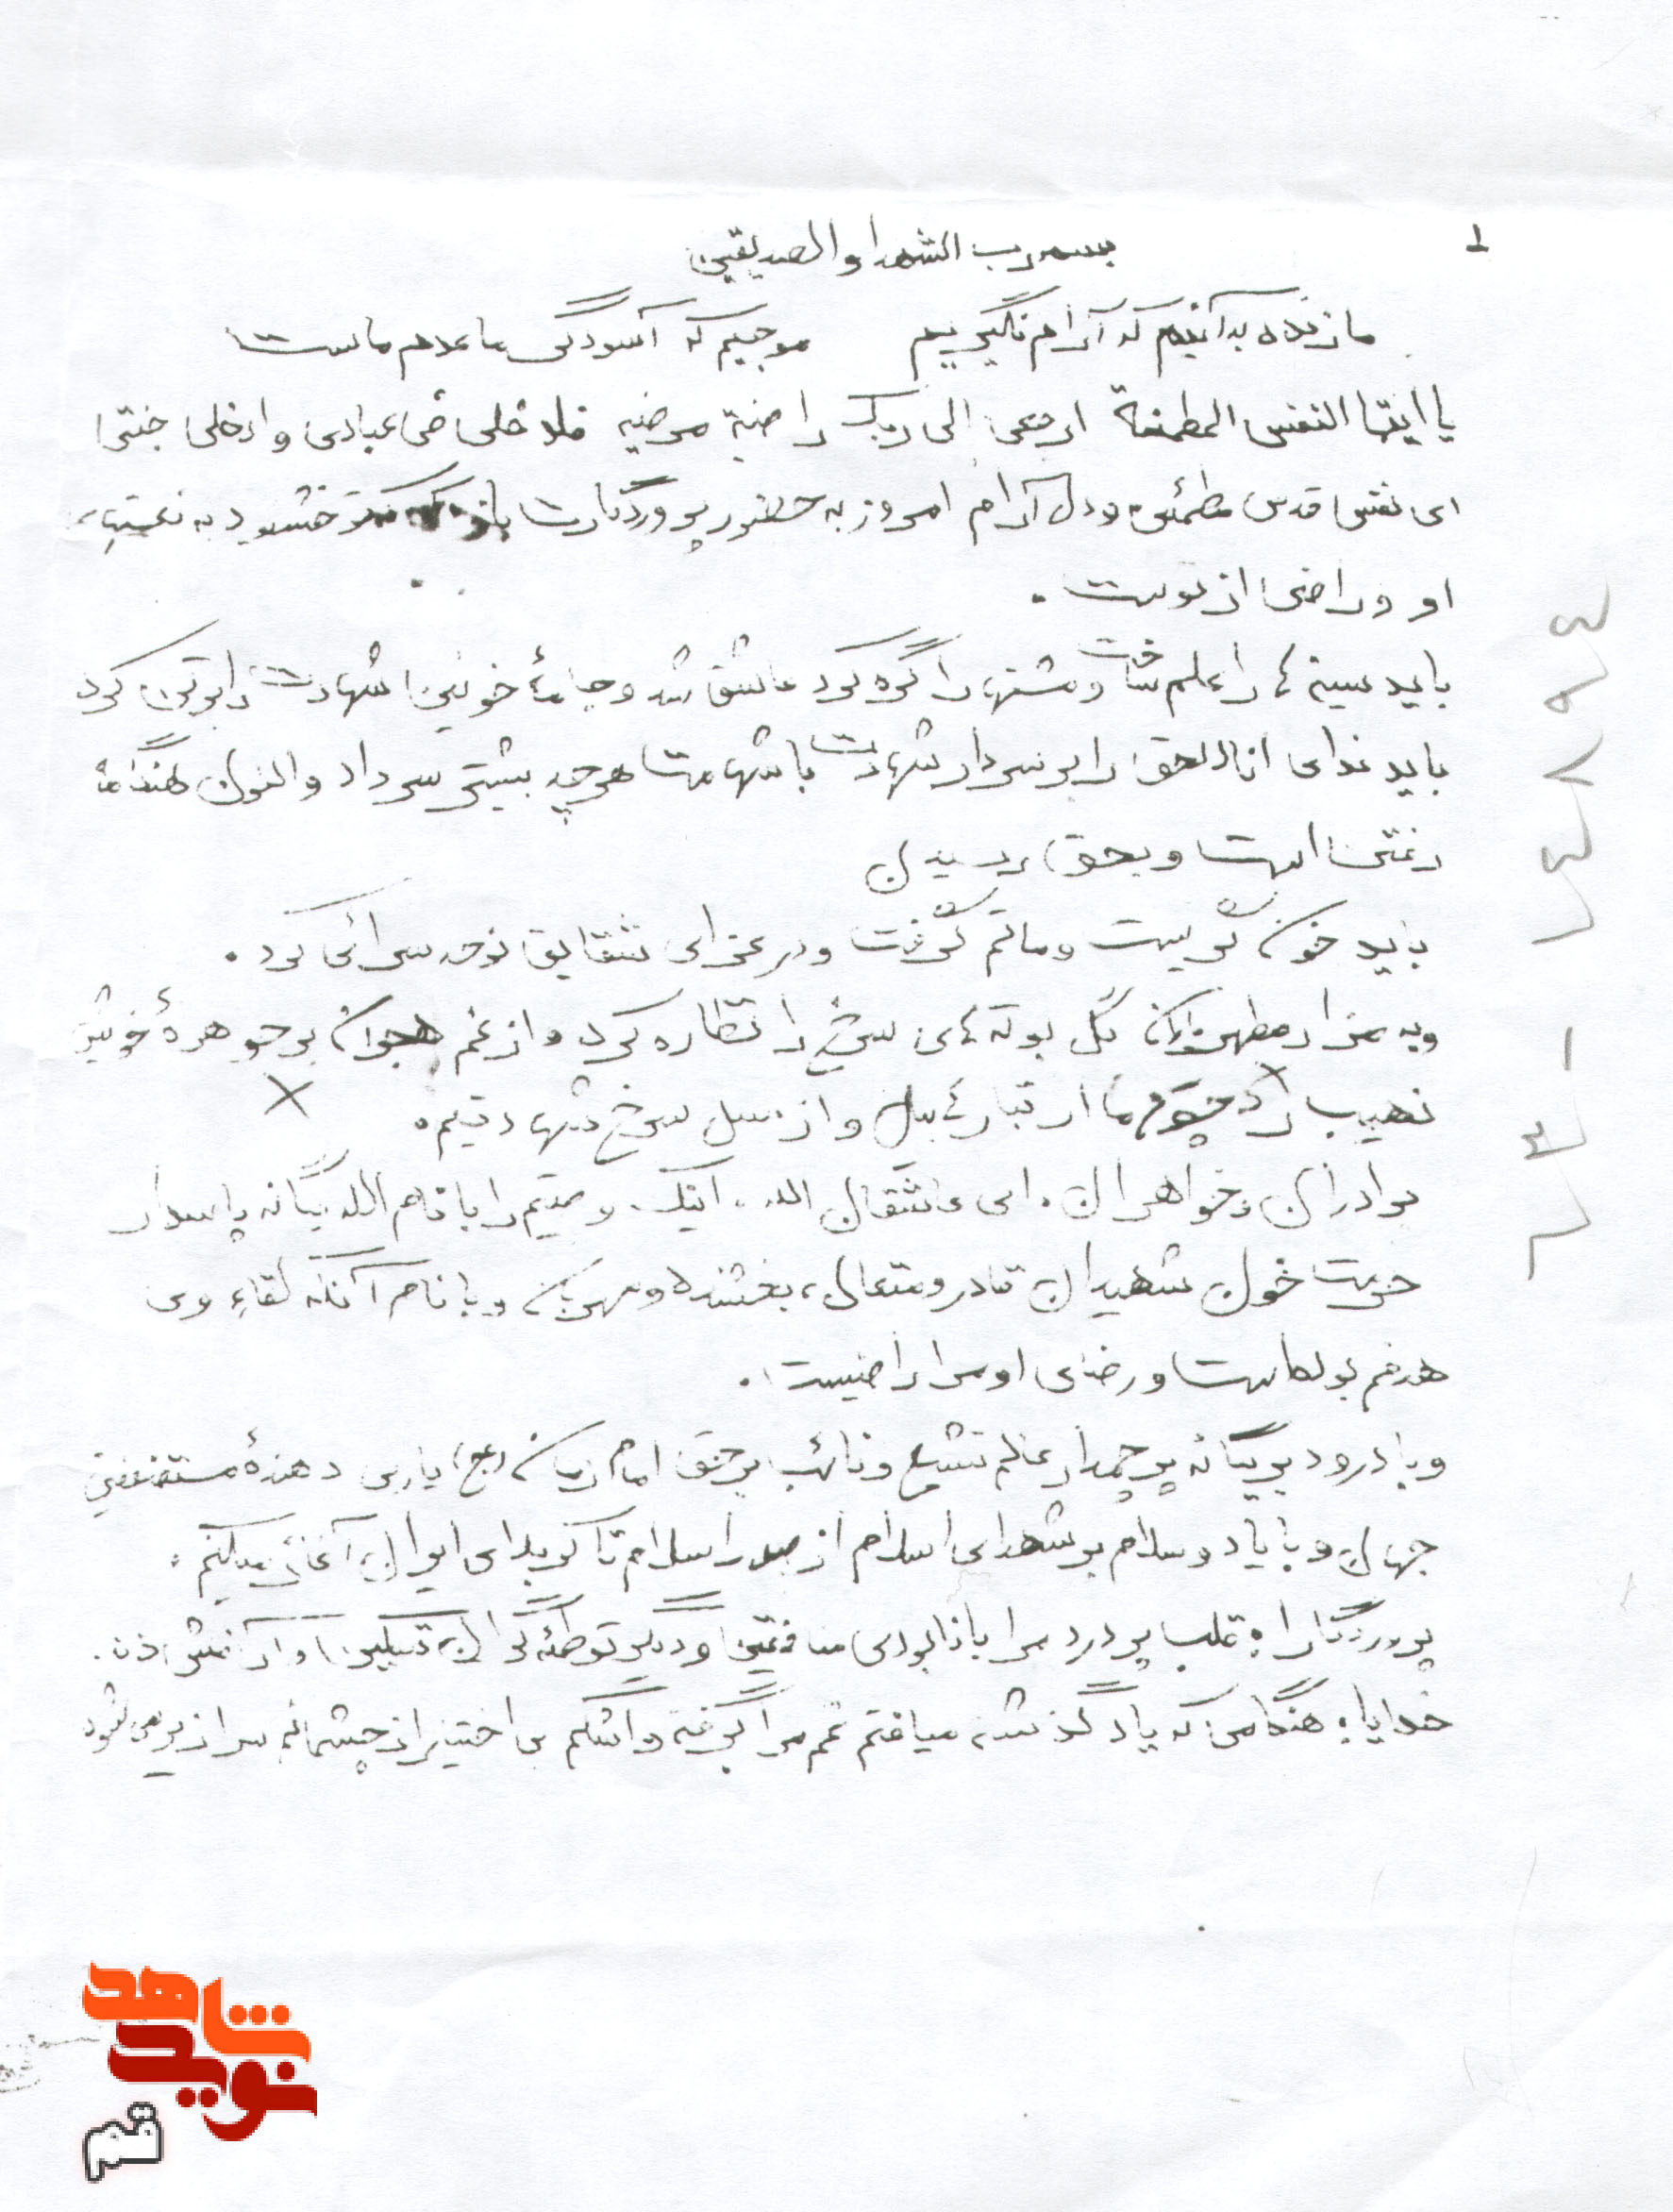 ۱
بسم رب الشهدا و الصدیقین
ما زنده به آنیم که آرام نگیریم موجیم که آسودگی ما عدم ماست
یا ایتها النفس المطمئنة ارجعی الی ربک راضیة مرضیه فادخلی فی عبادی و ادخلی جنتی
ای نفس قدسی مطمئن و دل آرام امروز به حضور پروردگارت باز خشنود به نعمتهای
او و راضی از توست .
باید سینه ها را علم ساخت و مشتها را گره کرد عاشق شد و جامهٔ خونین شهادت را بر تن کرد
باید ندای انا الحق را بر سردار شهادت با شهامت هر چه بیشتر سر داد و اکنون هنگامه
رفتن است و بحق رسیدن
باید خون گریست و ماتم گرفت و در عزای شقایق نوحه سرائی کرد .
و به مزار مطهرشان گل بوته های سرخ را نظاره کرد و از غم هجران بر جوهرهٔ خویش
نهیب زد ما از تبار هابیل و از نسل سرخ شهادتیم .
برادران و خواهران . ای عاشقان الله . اینک وصیتم را با نام الله یگانه پاسدار
حرمت خون شهیدان قادر و متعال ، بخشنده و مهربان و با نام آنکه لقاء وی
هدفم بوده است و رضای او مرا راضیست .
و با درود بر یگانه پرچمدار عالم تشیع و نائب بر حق امام زمان (عج) یاری دهندهٔ مستضعفین
جهان و با یاد و سلام بر شهدای اسلام از صدر اسلام تا کربلای ایران آغاز میکنم .
پروردگارا ، قلب پر درد مرا با نابودی منافقین و دیگر توطئه گران تسکین و آرامش ده .
خدایا ، هنگامی که یاد گذشته میافتم غم مرا گرفته و اشکم بی اختیار از چشمانم سرازیر می شود
شاهد
نوید
قم